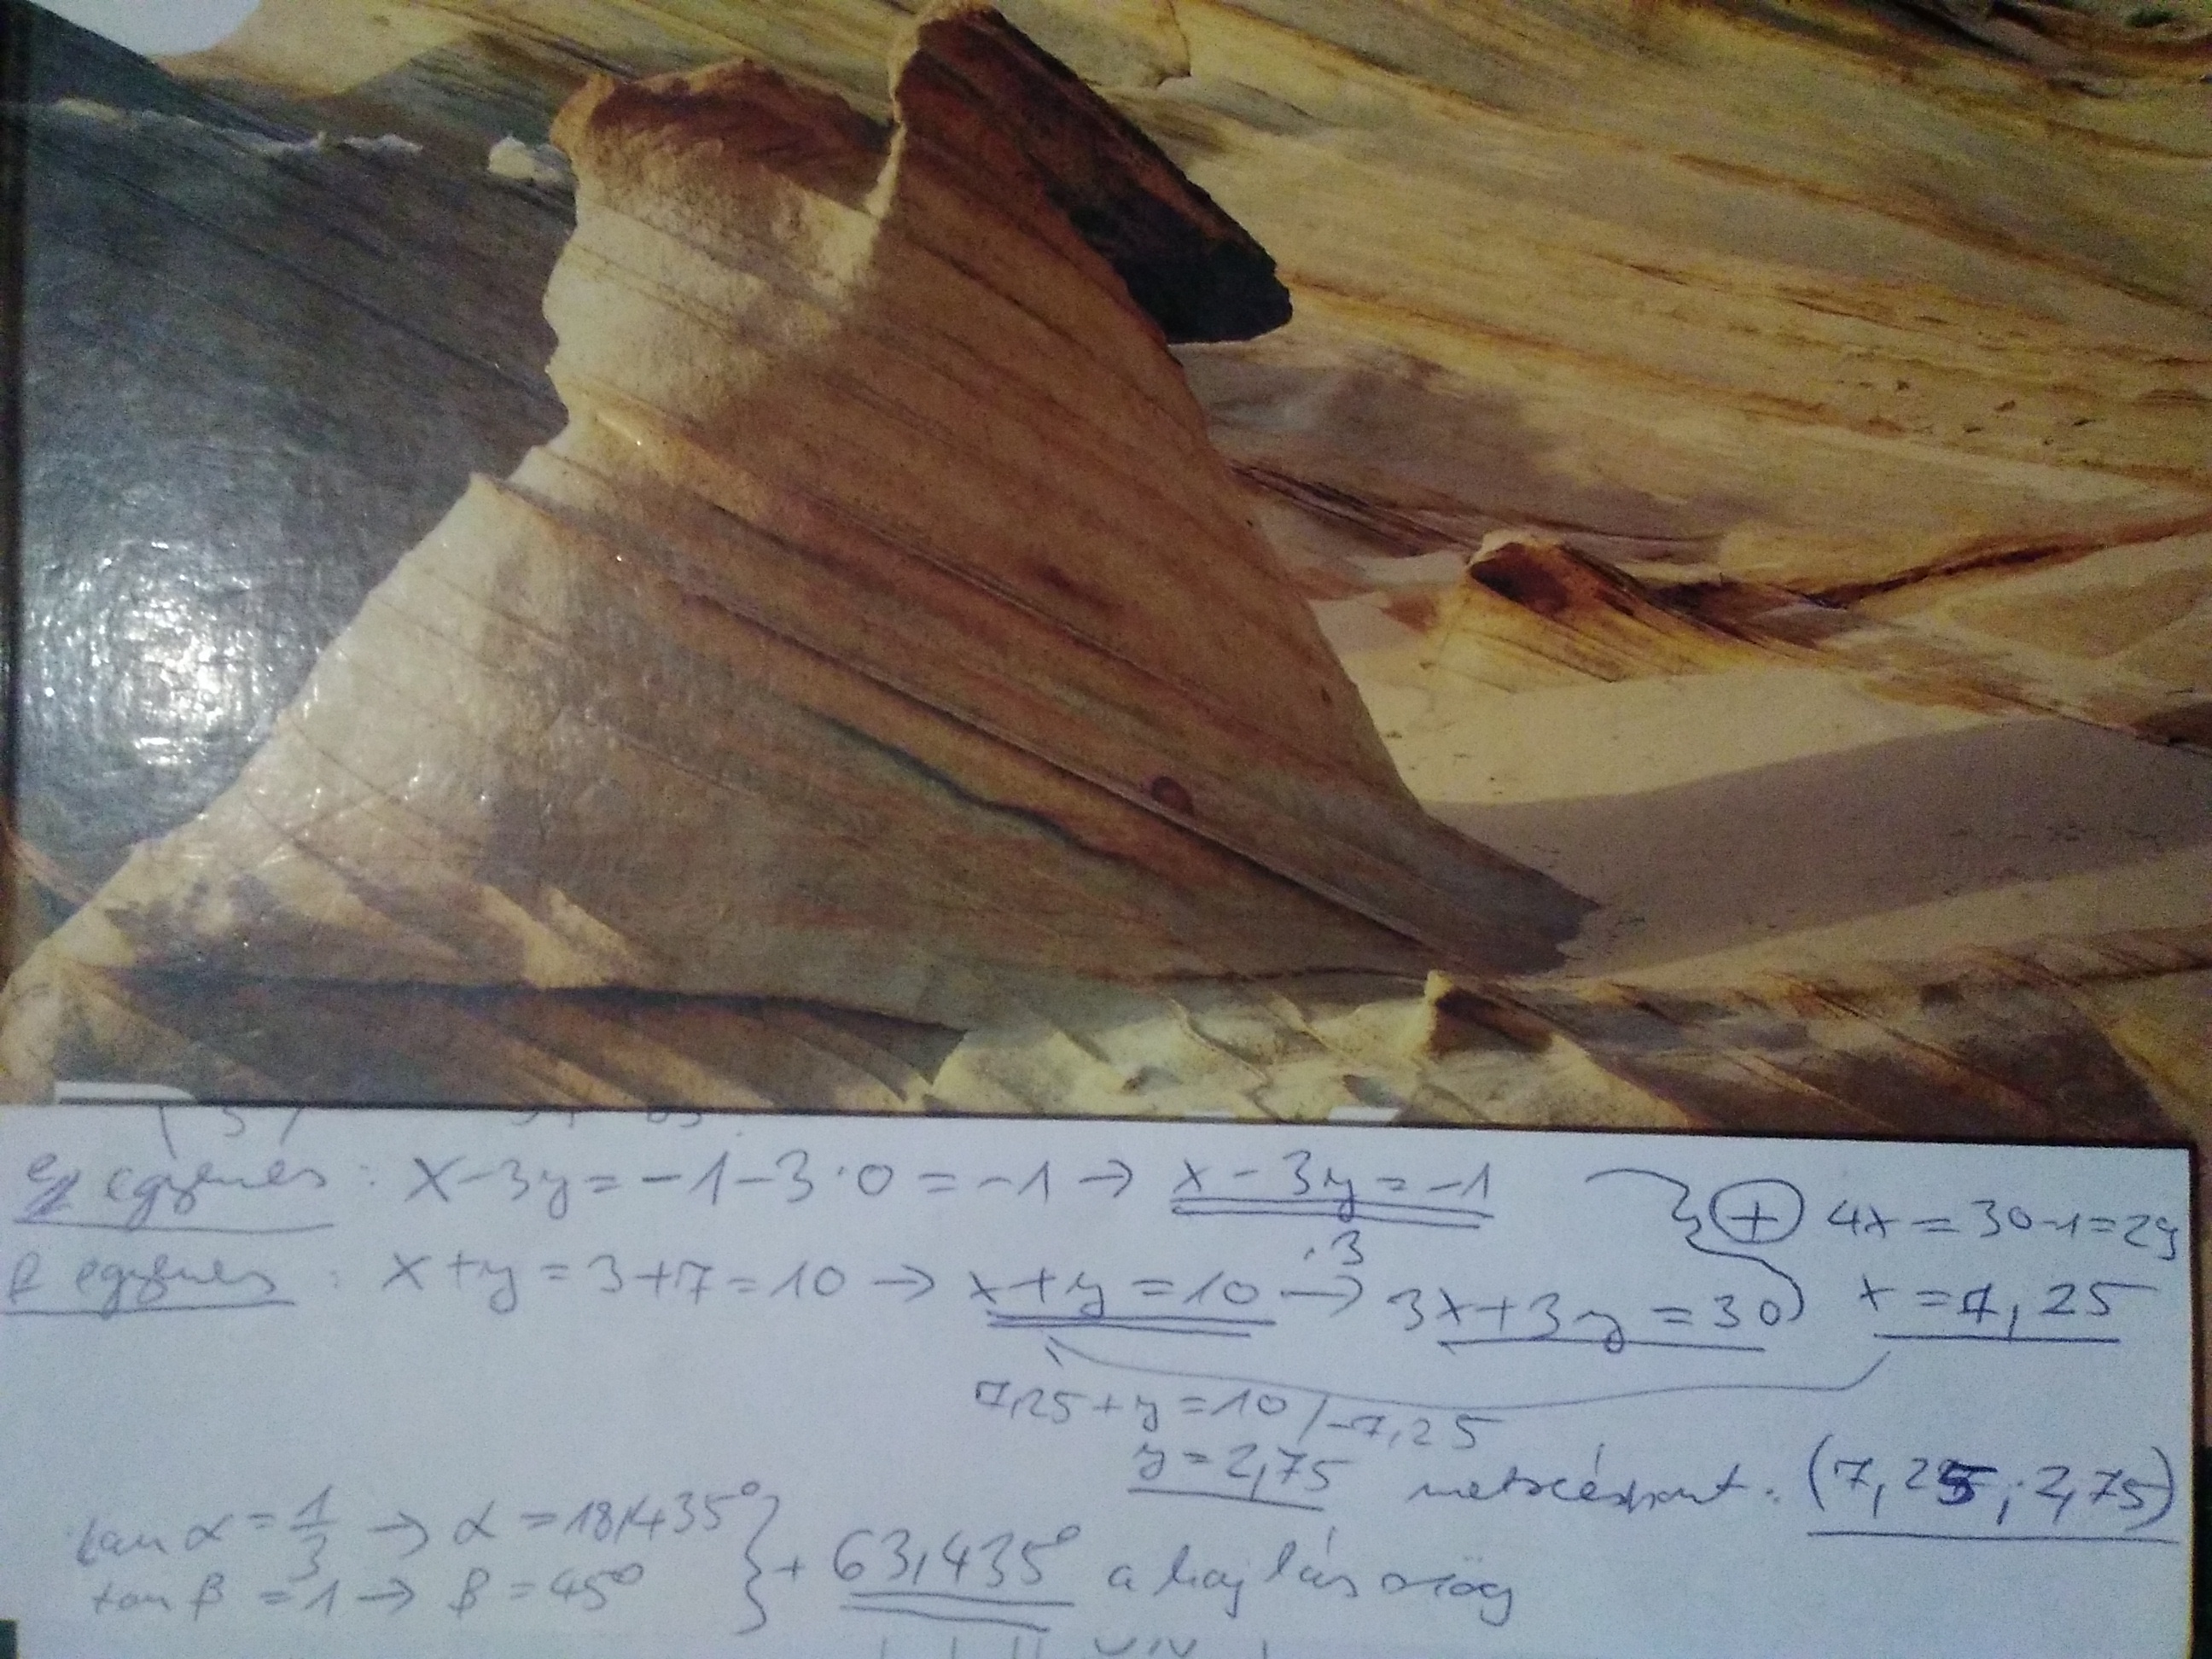 e egyenes: x-3y=-1-3·0=-1 → x-3y=-1
f egyenes: x+y=3+7=10 → x+y=10 ·3→ 3x+3y=30
+ 4x=30-1=29
x=7,25
7,25+y=10 /-7,25
y=2,75 metszéspont: (7,25; 2,75)
tan α = 1/3 → α = 18,435°
tan β = 1 → β = 45°
+ 63,435° a hajlásszög